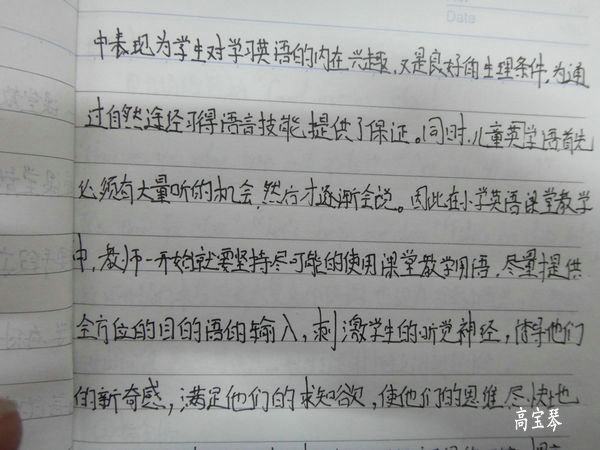 Date
中表现为学生对学习英语的内在兴趣,又是良好的生理条件,为通
过自然途经习得语言技能,提供了保证。同时,儿童英学语首先
必须有大量听的机会,然后才逐渐会说。因此在小学英语课堂教学
中,教师一开始就要坚持尽可能的使用课堂教学用语,尽量提供
全方位的目的语的输入,刺激学生的听觉神经,他们
的新奇感,满足他们的求知欲,使他们的思维尽快地
高宝琴